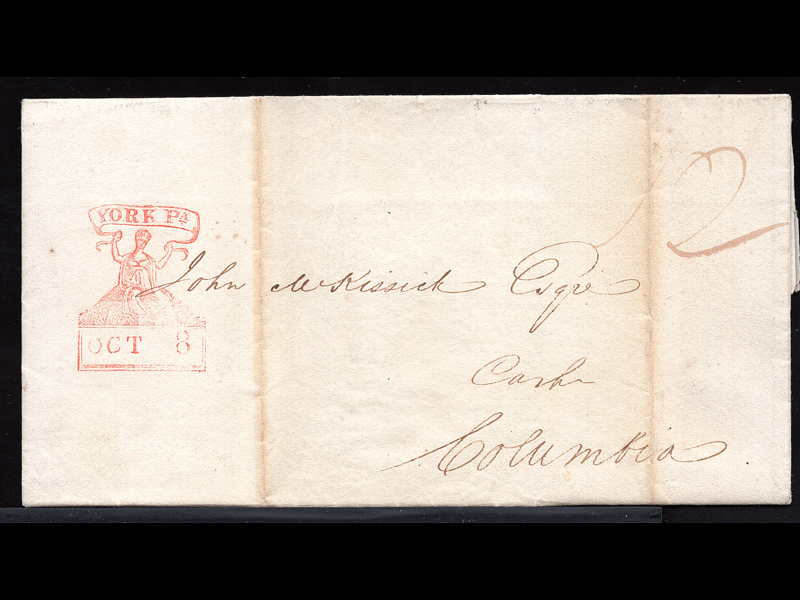 YORK PA
OCT 8
John McKissick Esqr
Cashr
Columbia